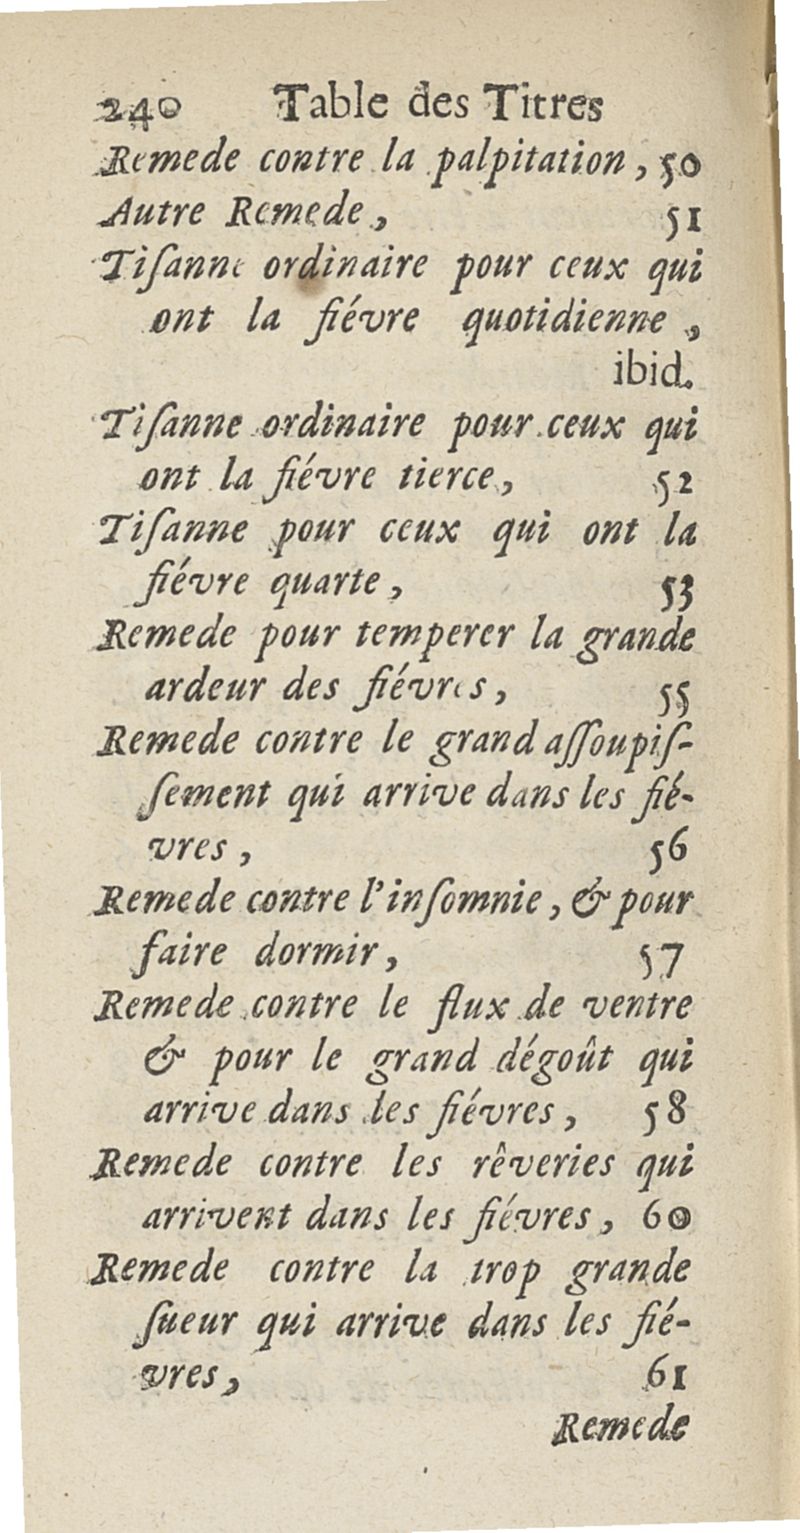 240 Table des Titres
Remede contre la palpitation, 50
Autre Remede, 51
Tiſanne ordinaire pour ceux qui
ont la fiévre quotidienne,
ibid.
Tiſanne ordinaire pour ceux qui
ont la fiévre tierce, 52
Tiſanne pour ceux qui ont la
fiévre quarte, 53
Remede pour temperer la grande
ardeur des fiévres, 55
Remede contre le grand aſſoupiſ-
ſement qui arrive dans les fié-
vres, 56
Remede contre l'inſomnie, & pour
faire dormir, 57
Remede contre le flux de ventre
& pour le grand dégoût qui
arrive dans les fiévres, 58
Remede contre les rêveries qui
arrivent dans les fiévres, 60
Remede contre la trop grande
ſueur qui arrive dans les fié-
vres, 61
Remede